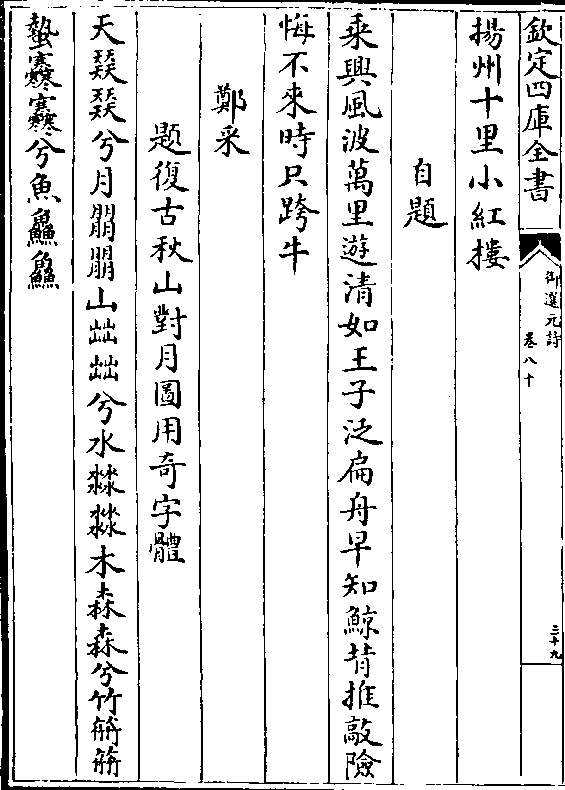 欽定四庫全書
御選元詩
卷八十
三十九
揚州十里小紅樓
自題
乘興風波萬里遊清如王子泛扁舟早知鯨背推敲險
悔不來時只跨牛
鄭采
題復古秋山對月圖用奇字體
天兮月朤朤山兮水㵘㵘木森森兮竹
蟄兮魚鱻鱻